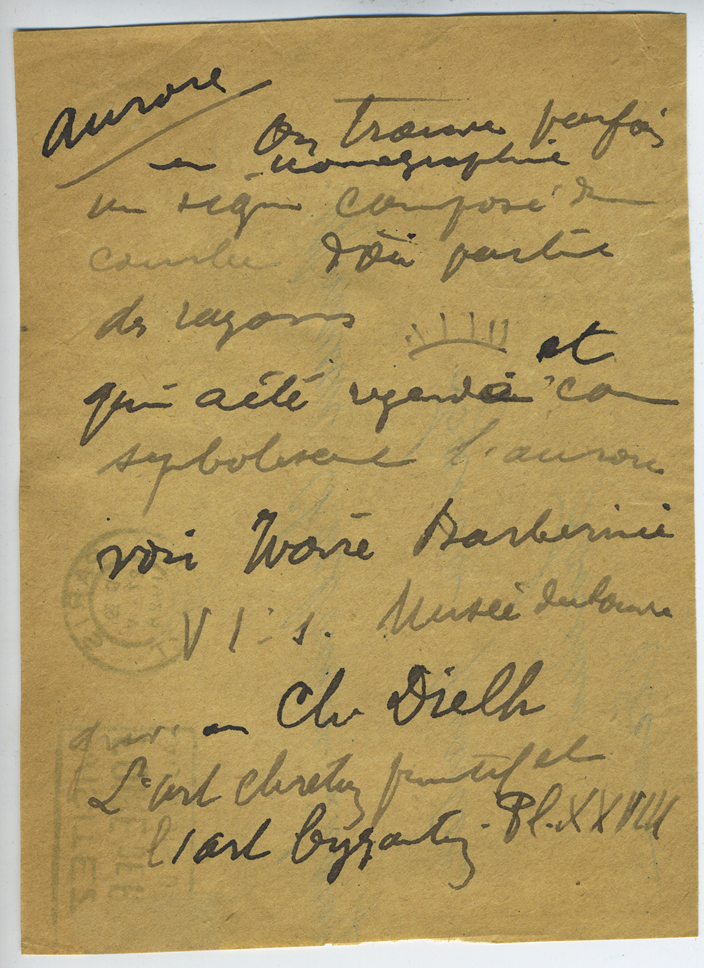 aurore
On trouve parfois
en iconographie
un signe composé d'une
courbe d'où partie
des rayons
et
qui a été regardé com
sybolisant l'aurore
voir Ivoire Barberini
VIe s. Musée du Louvre
en Ch. Dielh
L'art chretien primitif et
l'art byzantin. Pl. XXVIII
PARIS